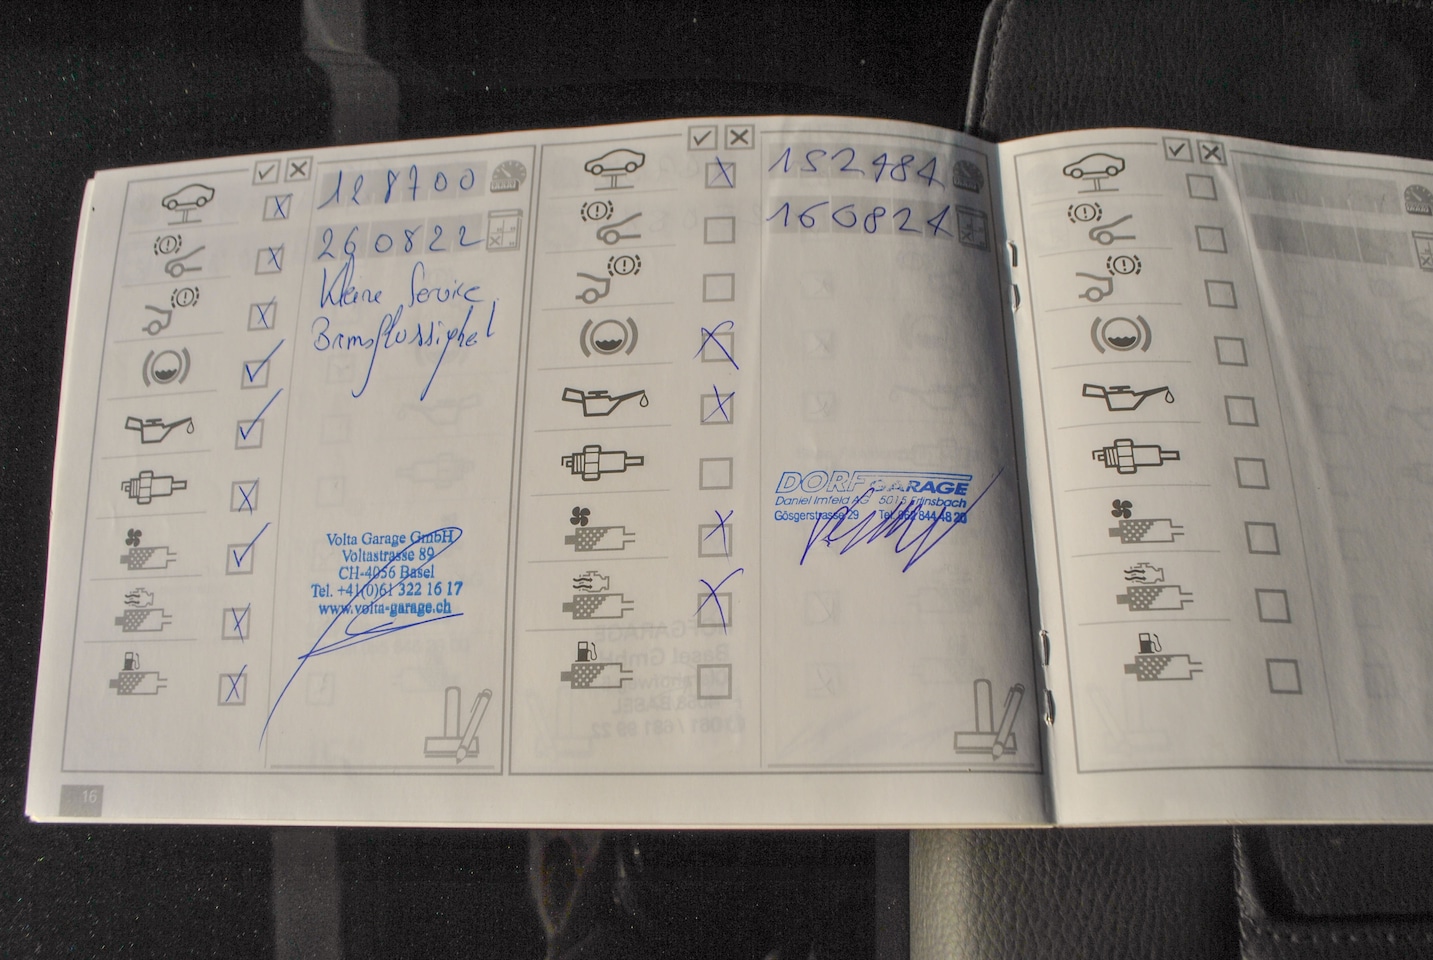 128700
260822
Kleine Service
Bremsflüssigkeit
Volta Garage GmbH
Voltastrasse 89
CH-4056 Basel
Tel. +41(0)61 322 16 17
www.volta-garage.ch
16
152484
160824
DORFGARAGE
Daniel Imfeld AG 5015 Erlinsbach
Gösgerstrasse 29 Tel. 062 844 48 20